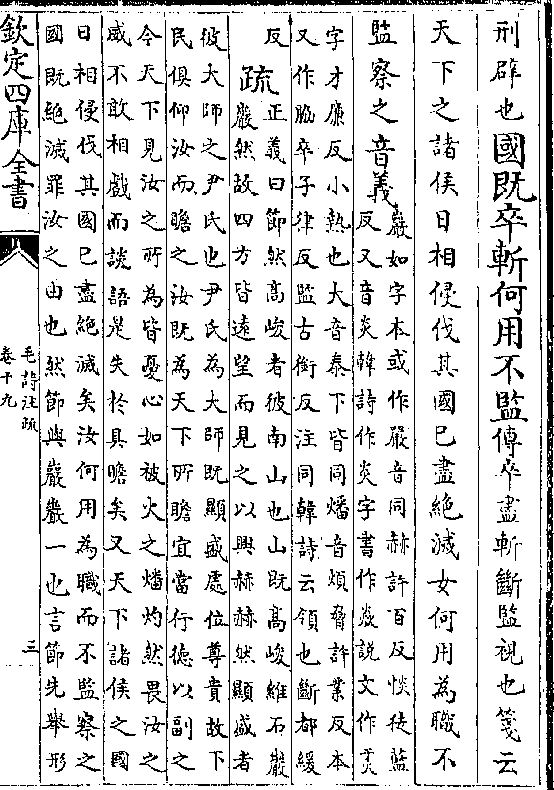 刑辟也國既卒斬何用不監傳卒盡斬斷監視也箋云
天下之諸侯日相侵伐其國已盡絶滅女何用為職不
監察之音義巖如字本或作嚴音同赫許百反惔徒藍
反又音炎韓詩作炎字書作焱説文作㶣
字才廉反小熱也大音泰下皆同燔音煩脅許業反本
又作脇卒子律反監古銜反注同韓詩云領也斷都緩
反
疏正義曰節然高峻者彼南山也山既高峻維石巖
巖然故四方皆遠望而見之以興赫赫然顯盛者
彼大師之尹氏也尹氏為大師既顯盛處位尊貴故下
民俱仰汝而瞻之汝既為天下所瞻宜當行德以副之
今天下見汝之所為皆憂心如被火之燔灼然畏汝之
威不敢相戲而談語是失於具瞻矣又天下諸侯之國
日相侵伐其國已盡絶滅矣汝何用為職而不監察之
國既絶滅罪汝之由也然節與巖巖一也言節先舉形
欽定四庫全書
毛詩注疏
卷十九
三